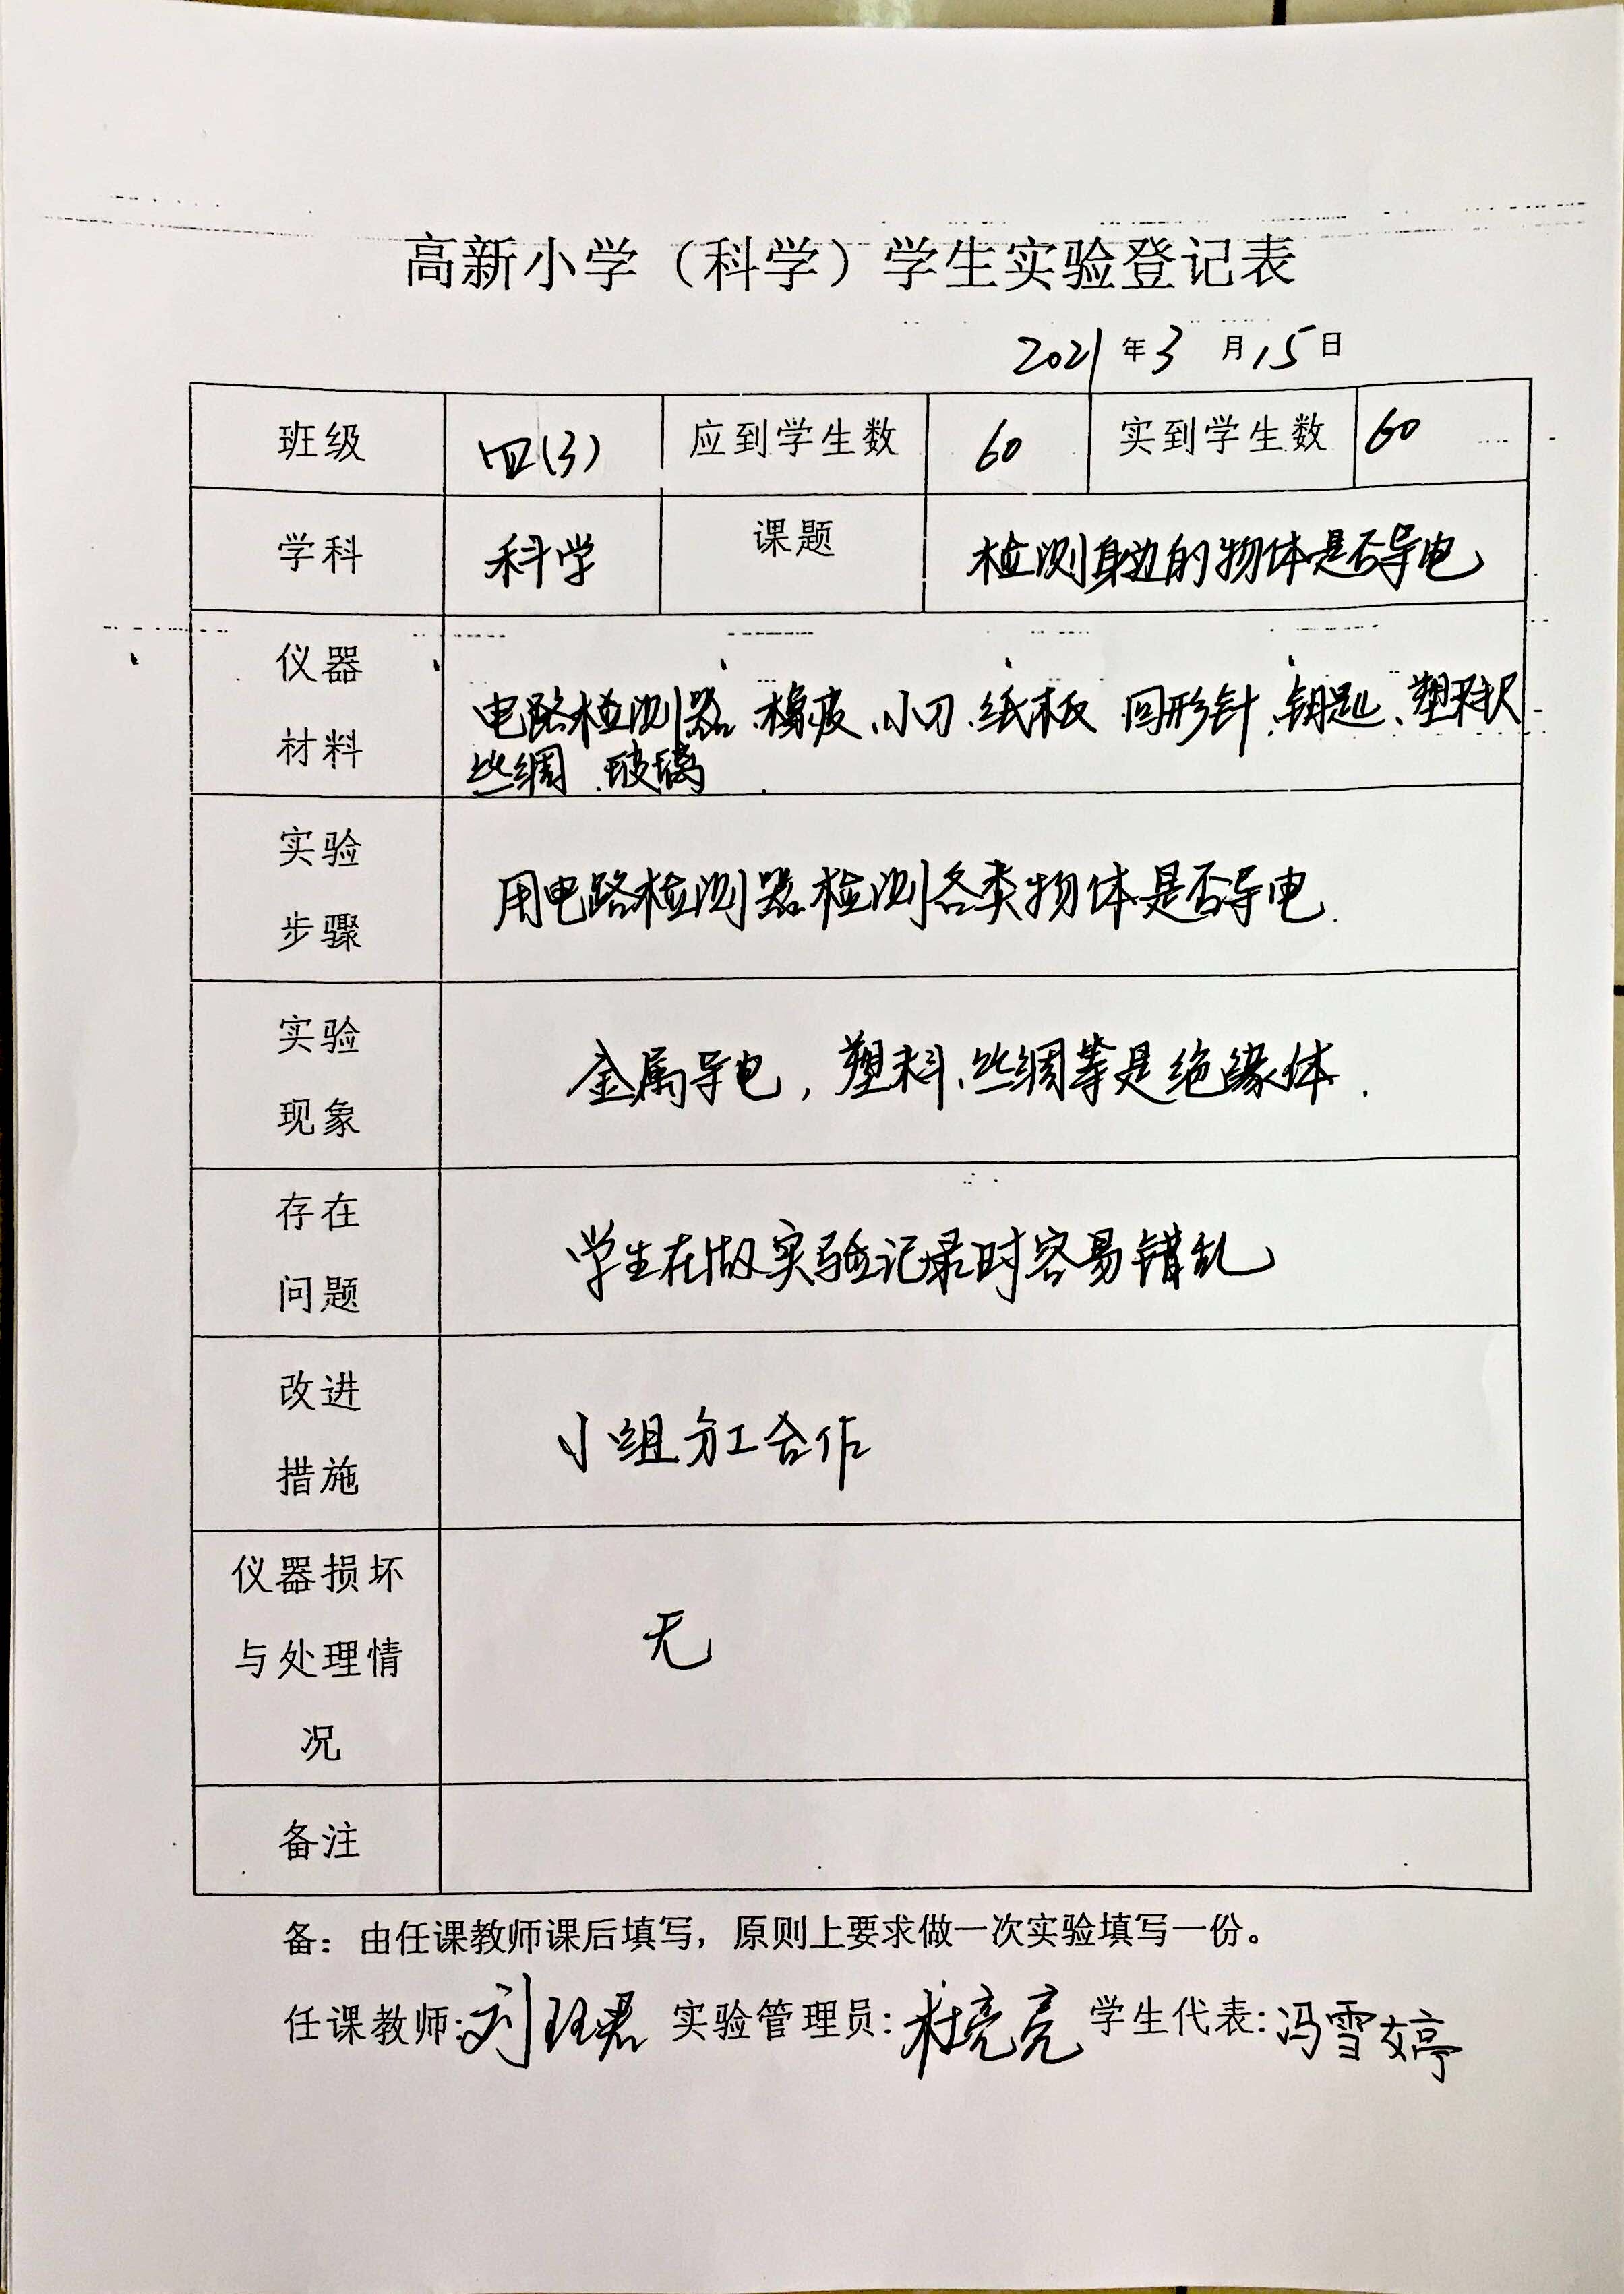 高新小学（科学）学生实验登记表
2021年3月15日
班级 四(3) 应到学生数 60 实到学生数 60
学科 科学 课题 检测身边的物体是否导电
仪器
材料
电路检测器、橡皮、小刀、纸板 回形针、钥匙、塑料尺
丝绸、玻璃
实验
步骤
用电路检测器检测各类物体是否导电.
实验
现象
金属导电，塑料、丝绸等是绝缘体.
存在
问题
学生在做实验记录时容易错乱
改进
措施
小组分工合作
仪器损坏
与处理情
况
无
备注
备：由任课教师课后填写，原则上要求做一次实验填写一份。
任课教师:刘 君 实验管理员:杜亮亮 学生代表:冯雪婷